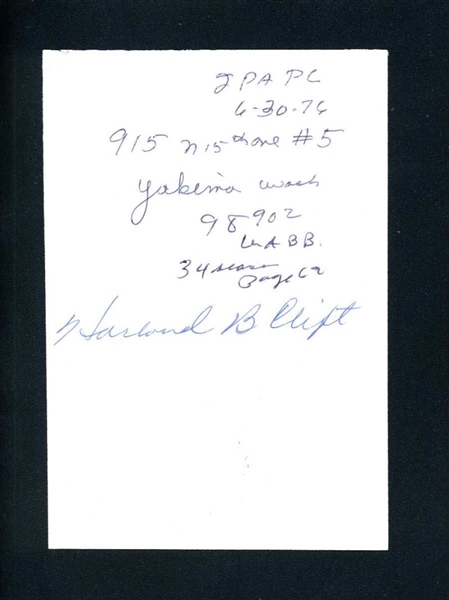 2 PA PC
6-30-76
915 N 15th ave #5
Yakima Wash
98902
BB.
34
Page 62
Harlond B Clift